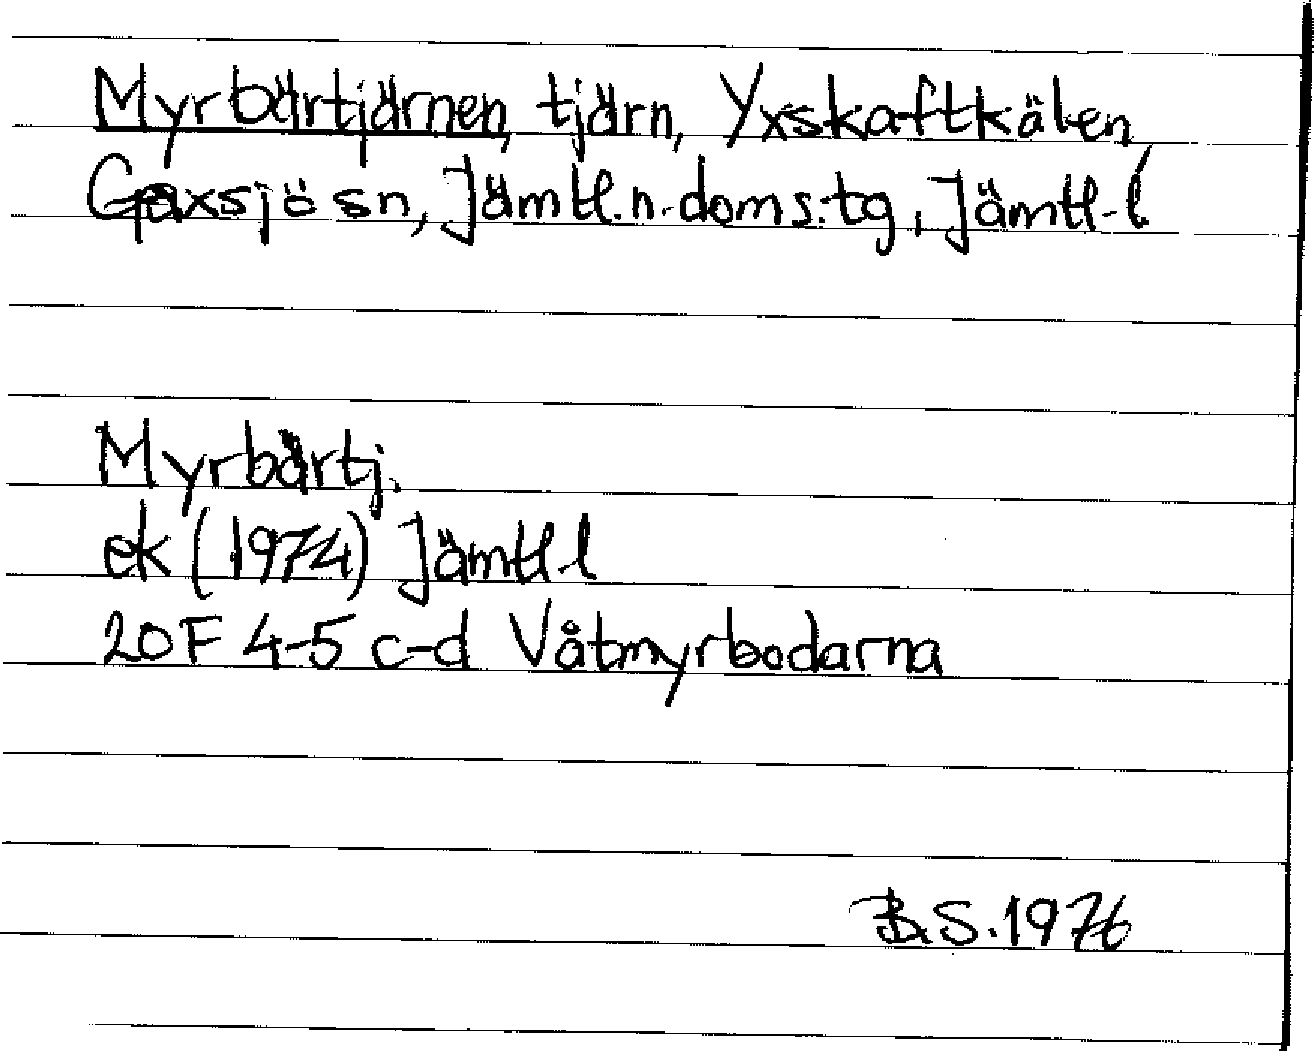 Myrbärtjärnen, tjärn, Yxskaftkälen
Gåxsjö sn, Jämtl.n.doms.tg, Jämtl-l
Myrbärtj.
ek (1974) Jämtl-l
20F 4-5 c-d Våtmyrbodarna
B.S.1976